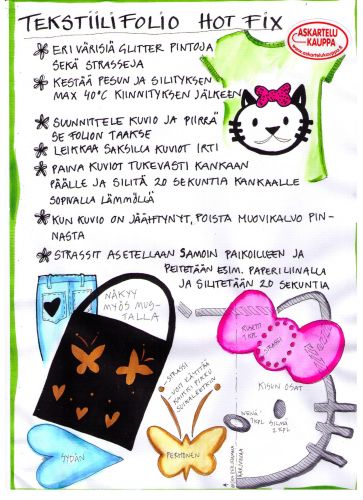 TEKSTIILIFOLIO HOT FIX
ASKARTELU
KAUPPA
ERI VÄRISIÄ GLITTER PINTOJA
SEKÄ STRASSEJA
KESTÄÄ PESUN JA SILITYKSEN
MAX 40°C KIINNITYKSEN JÄLKEEN
SUUNNITTELE KUVIO JA PIIRRÄ
SE FOLION TAAKSE
LEIKKAA SAKSILLA KUVIOT IRTI
PAINA KUVIOT TUKEVASTI KANKAAN
PÄÄLLE JA SILITÄ 20 SEKUNTIA KANKAALLE
SOPIVALLA LÄMMÖLLÄ
KUN KUVIO ON JÄÄHTYNYT, POISTA MUOVIKALVO PIN-
NASTA
STRASSIT ASETELLAAN SAMOIN PAIKOILLEEN JA
PEITETÄÄN ESIM. PAPERILIINALLA
JA SILITETÄÄN 20 SEKUNTIA
NÄKYY
MYÖS MUS-
TALLA
RUSETTI
1 KPL
STRASSI
KISUN OSAT
NENÄ
1KPL
SILMÄ
2 KPL
STRASSI
VOIT KÄYTTÄÄ
KAIKKI PIKKU
SUIKALEETKIN
SYDÄN
PERHONEN